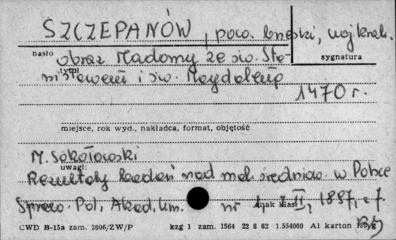 SZCZEPANÓW, pow. brzeski, woj. krak.
hasło
sygnatura
obraz Madonny ze św. Sta-
tytuł
nisławem i św. Magdaleną
1470 r.
miejsce, rok wyd., nakładca, format, objętość
M. Sokołowski
uwagi:
Rezultaty badań nad mal. średniow. w Polsce
Spraw. Pol. Akad. Um. nr II, 1897, s. 7.
CWD B-15a zam. 2006/ZW/P kzg 1 zam. 1564 22 8 62 1.554000 A1 karton